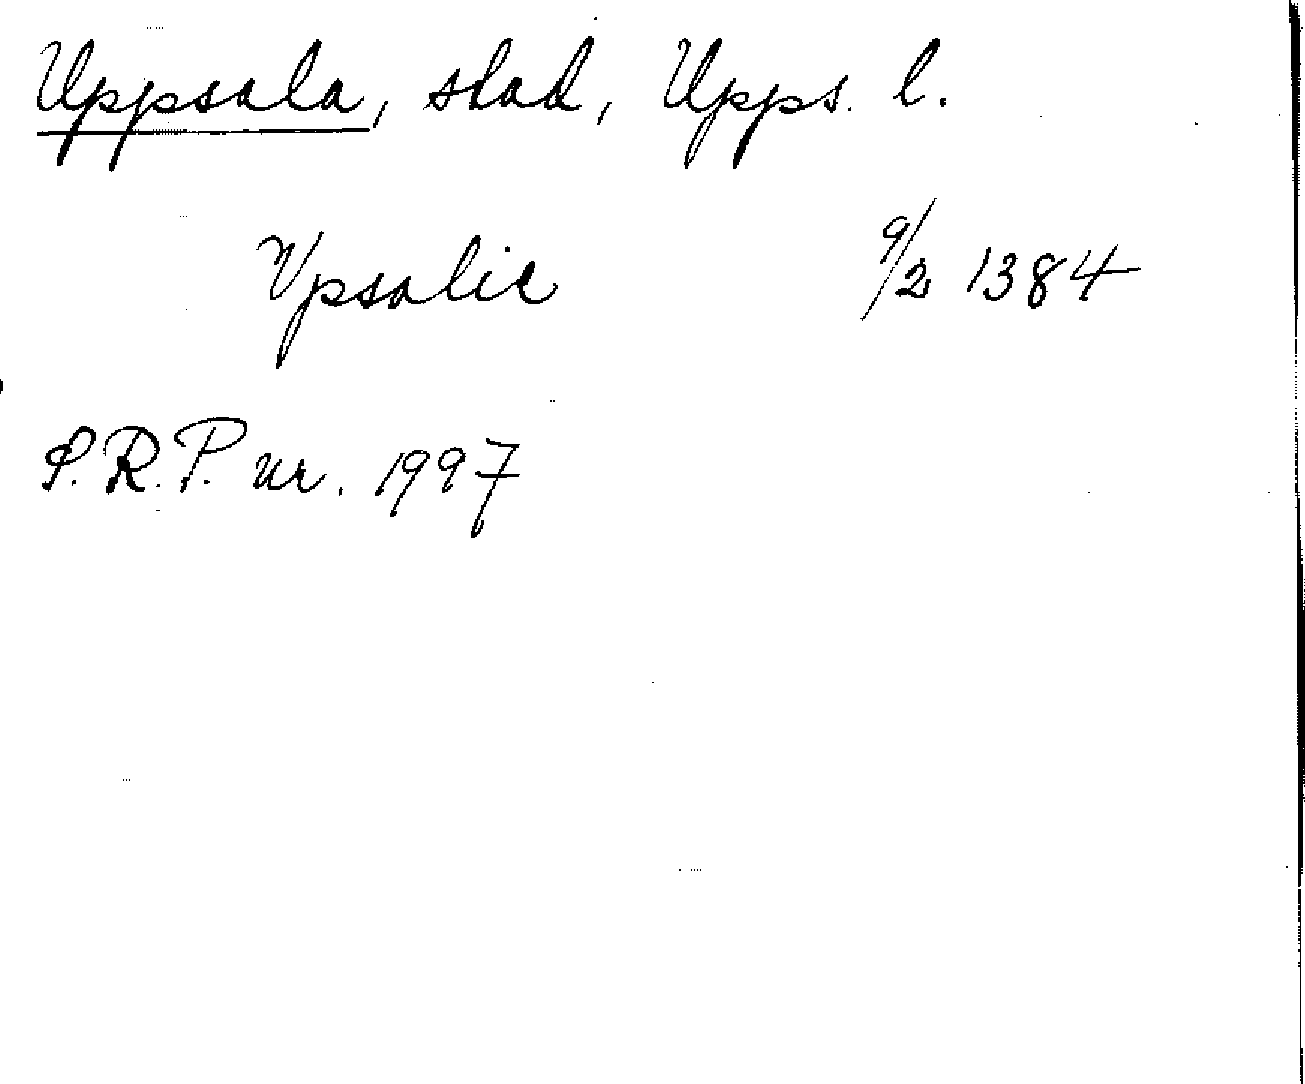 Uppsala, stad, Upps. l.
Vpsalie 9/2 1384
S.R.P. nr. 1997